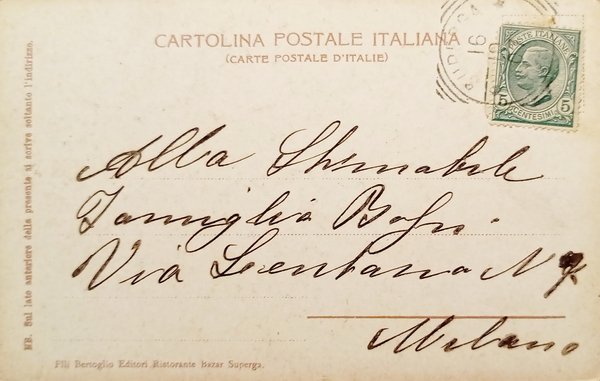 CARTOLINA POSTALE ITALIANA
(CARTE POSTALE D'ITALIE)
POSTE ITALIANE
5 5
CENTESIMI
16
Alla Stimabile
Famiglia
Via Lentana N 7
Milano
NB. Sul lato anteriore della presente si scrive soltanto l'indirizzo.
Flli Bertoglio Editori Ristorante Bazar Superga.